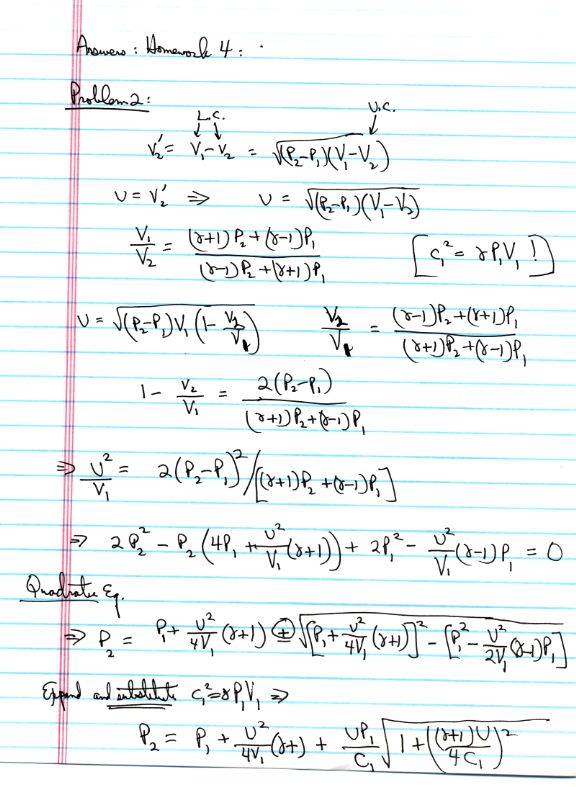 Answers : Homework 4 :
Problem 2:
L.C. U.C.
v₂' = v₁ - v₂ = √(P₂-P₁)(V₁-V₂)
U = v₂' ⇒ U = √(P₂-P₁)(V₁-V₂)
V₁/V₂ = ((γ+1)P₂+(γ-1)P₁)/((γ-1)P₂+(γ+1)P₁) [c₁² = γP₁V₁ !]
U = √(P₂-P₁)V₁(1 - V₂/V₁) V₂/V₁ = ((γ-1)P₂+(γ+1)P₁)/((γ+1)P₂+(γ-1)P₁)
1 - V₂/V₁ = 2(P₂-P₁)/((γ+1)P₂+(γ-1)P₁)
⇒ U²/V₁ = 2(P₂-P₁)²/[(γ+1)P₂+(γ-1)P₁]
⇒ 2P₂² - P₂(4P₁ + U²/V₁(γ+1)) + 2P₁² - U²/V₁(γ-1)P₁ = 0
Quadratic Eq.
⇒ P₂ = P₁ + U²/4V₁(γ+1) ± √[P₁ + U²/4V₁(γ+1)]² - [P₁² - U²/2V₁(γ-1)P₁]
Expand and substitute c₁² = γP₁V₁ ⇒
P₂ = P₁ + U²/4V₁(γ+) + UP₁/C₁ √1 + ((γ+1)U/4C₁)²